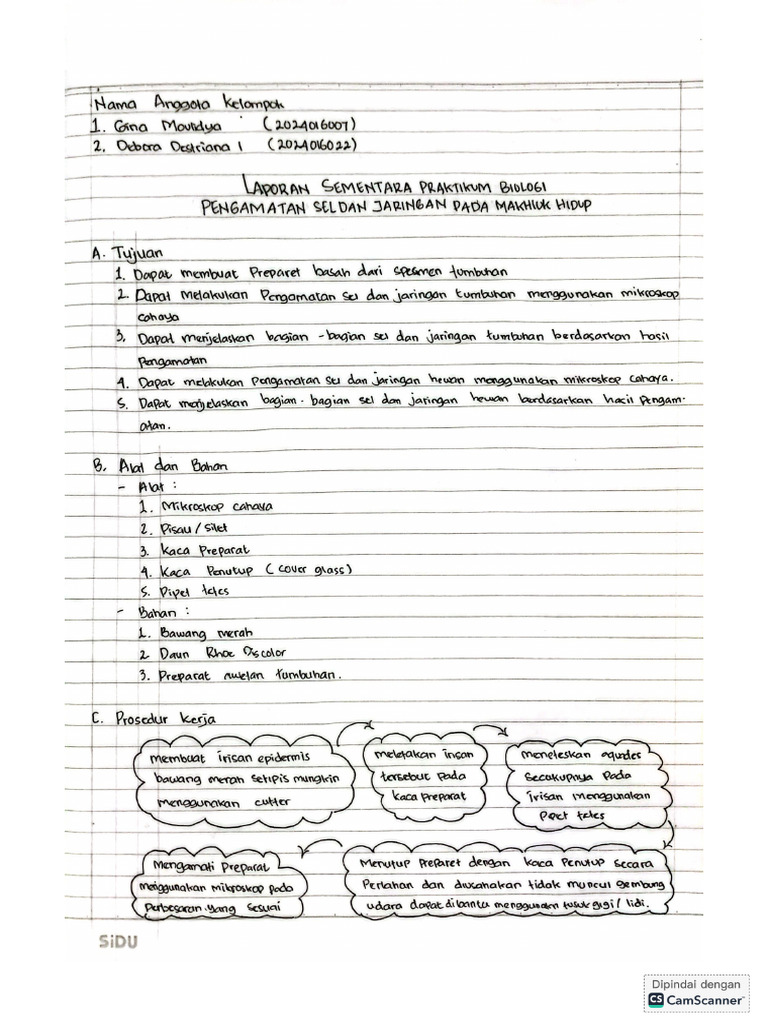 Nama Anggota Kelompok
1. Gina Mauridya (2024016007)
2. Debora Destriana I (2024016022)
LAPORAN SEMENTARA PRAKTIKUM BIOLOGI
PENGAMATAN SEL DAN JARINGAN PADA MAKHLUK HIDUP
A. Tujuan
1. Dapat membuat Preparet basah dari spesmen tumbuhan
2. Dapat Melakukan Pengamatan sel dan jaringan tumbuhan menggunakan mikroskop
cahaya
3. Dapat menjelaskan bagian - bagian sel dan jaringan tumbuhan berdasarkan hasil
Pengamatan
4. Dapat melakukan pengamatan sel dan jaringan hewan menggunakan mikroskop cahaya.
5. Dapat menjelaskan bagian - bagian sel dan jaringan hewan berdasarkan hasil pengam-
atan.
B. Alat dan Bahan
- Alat :
1. Mikroskop cahaya
2. Pisau / Silet
3. Kaca Preparat
4. Kaca Penutup (cover glass)
5. Pipet tetes
- Bahan :
1. Bawang merah
2 Daun Rhoe Discolor
3. Preparat awetan tumbuhan.
C. Prosedur Kerja
Membuat irisan epidermis
bawang merah setipis mungkin
menggunakan cutter
meletakan irisan
tersebut pada
kaca preparat
meneteskan aqudes
secakupnya pada
irisan menggunakan
Pipet tetes
Mengamati Preparat
menggunakan mikroskop pada
perbesaran yang sesuai
Menutup Preparet dengan kaca Penutup secara
Perlahan dan diusahakan tidak muncul gembung
udara dapat dibantu menggunakan tusuk gigi / lidi.
SiDU
Dipindai dengan
CS CamScanner